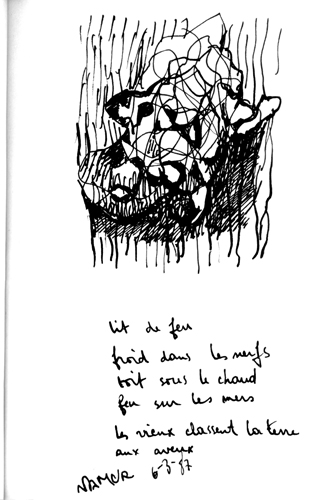 lit de feu
froid dans les nerfs
toit sous le chaud
feu sur les mers
les vieux classent la terre
aux aveux
NAMUR 6-3-87